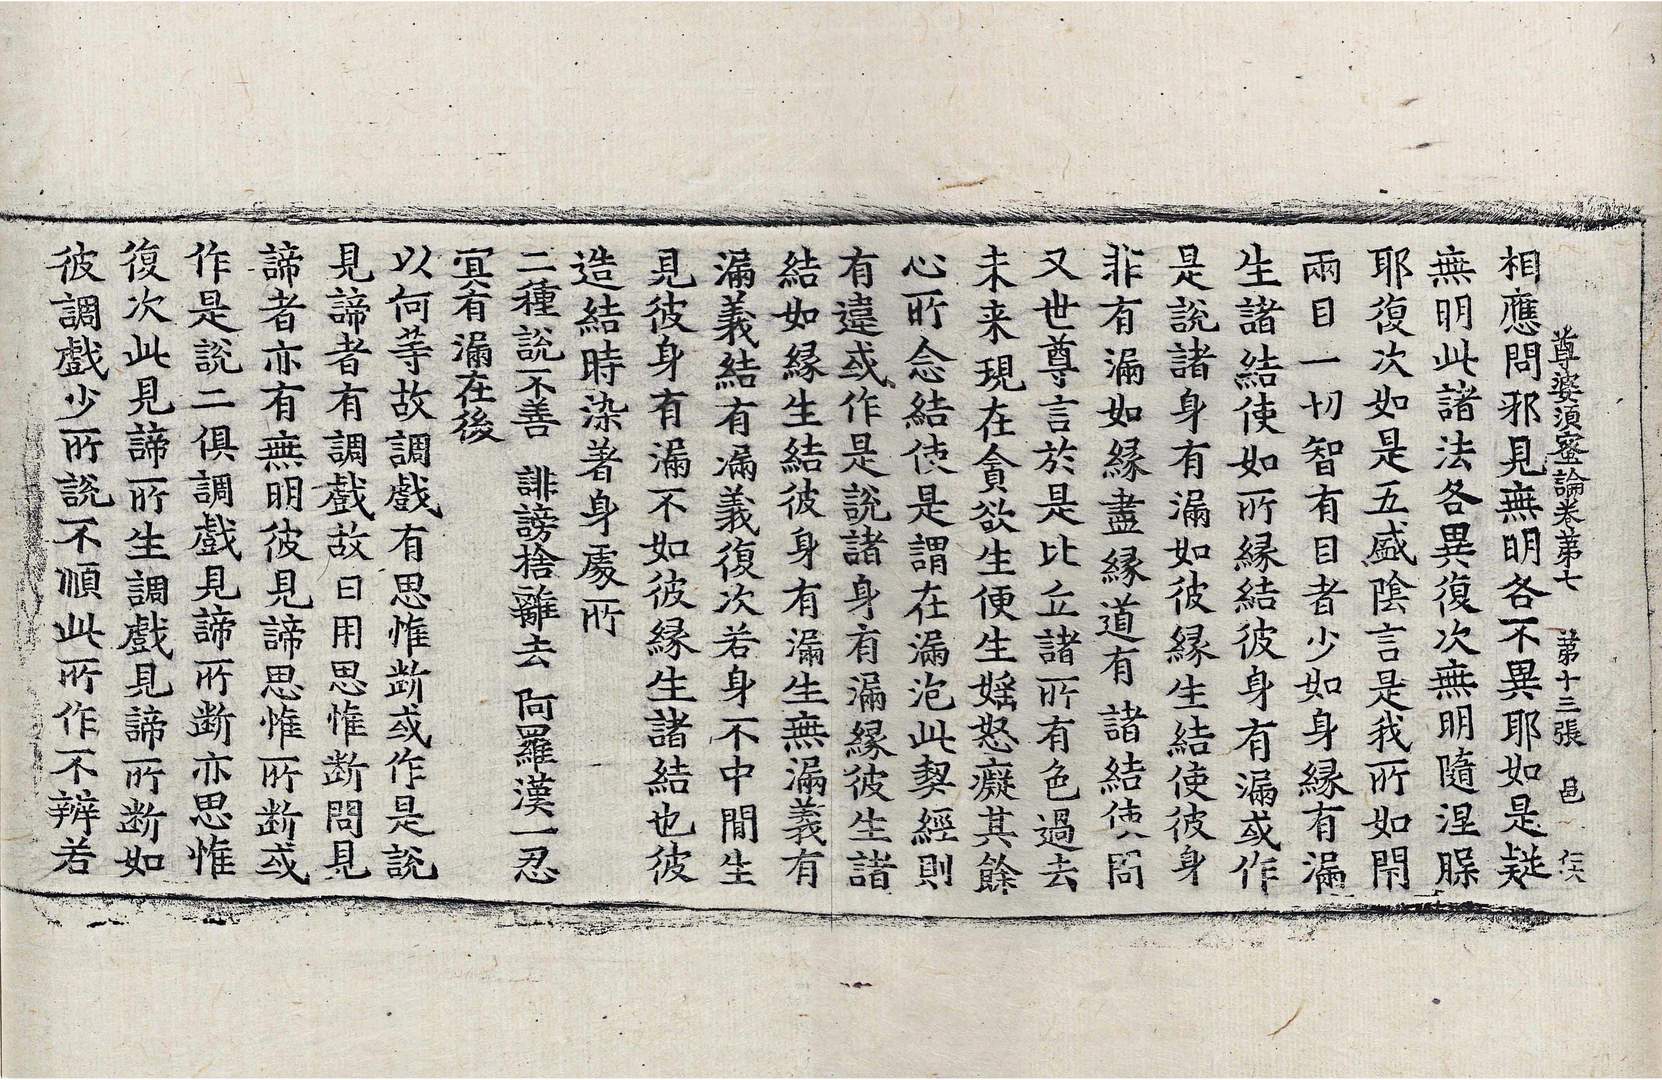 尊婆須蜜論卷第七 第十三張 邑
相應問邪見無明各不異耶如是疑
無明此諸法各異復次無明隨涅
耶復次如是五盛陰言是我所如閇
兩目一切智有目者少如身縁有漏
生諸結使如所縁結彼身有漏或作
是說諸身有漏如彼縁生結使彼身
非有漏如縁盡縁道有諸結使問
又世尊言於是比丘諸所有色過去
未来現在貪欲生便生婬怒癡其餘
心所念結使是謂在漏泡此契經則
有違或作是說諸身有漏縁彼生諸
結如縁生結彼身有漏生無漏義有
漏義結有漏義復次若身不中間生
見彼身有漏不如彼縁生諸結也彼
造結時染著身處所
二種說不善 誹謗捨離去 阿羅漢一忍
冝有漏在後
以何等故調戲有思惟断或作是說
見諦者有調戲故曰用思惟断問見
諦者亦有無明彼見諦思惟所断或
作是說二俱調戲見諦所断亦思惟
復次此見諦所生調戲見諦所断如
彼調戲少所說不順此所作不辨若